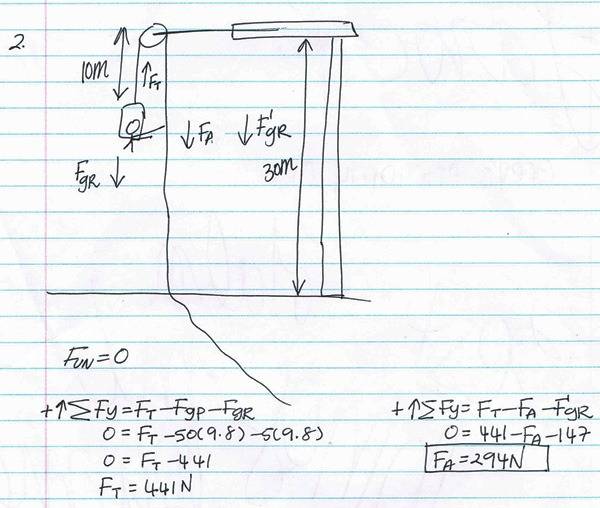 2.
10m
↑F_T
↓F_A
↓F'_gR
30m
F_gR↓
F_UN=0
+↑ΣFy=F_T-F_gP-F_gR
0=F_T-50(9.8)-5(9.8)
0=F_T-441
F_T=441N
+↑ΣFy=F_T-F_A-F'_gR
0=441-F_A-147
F_A=294N